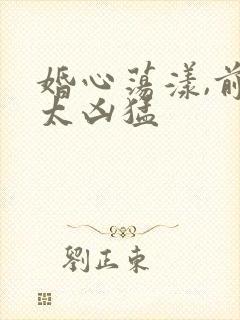 婚心荡漾,前
太凶猛
劉正東